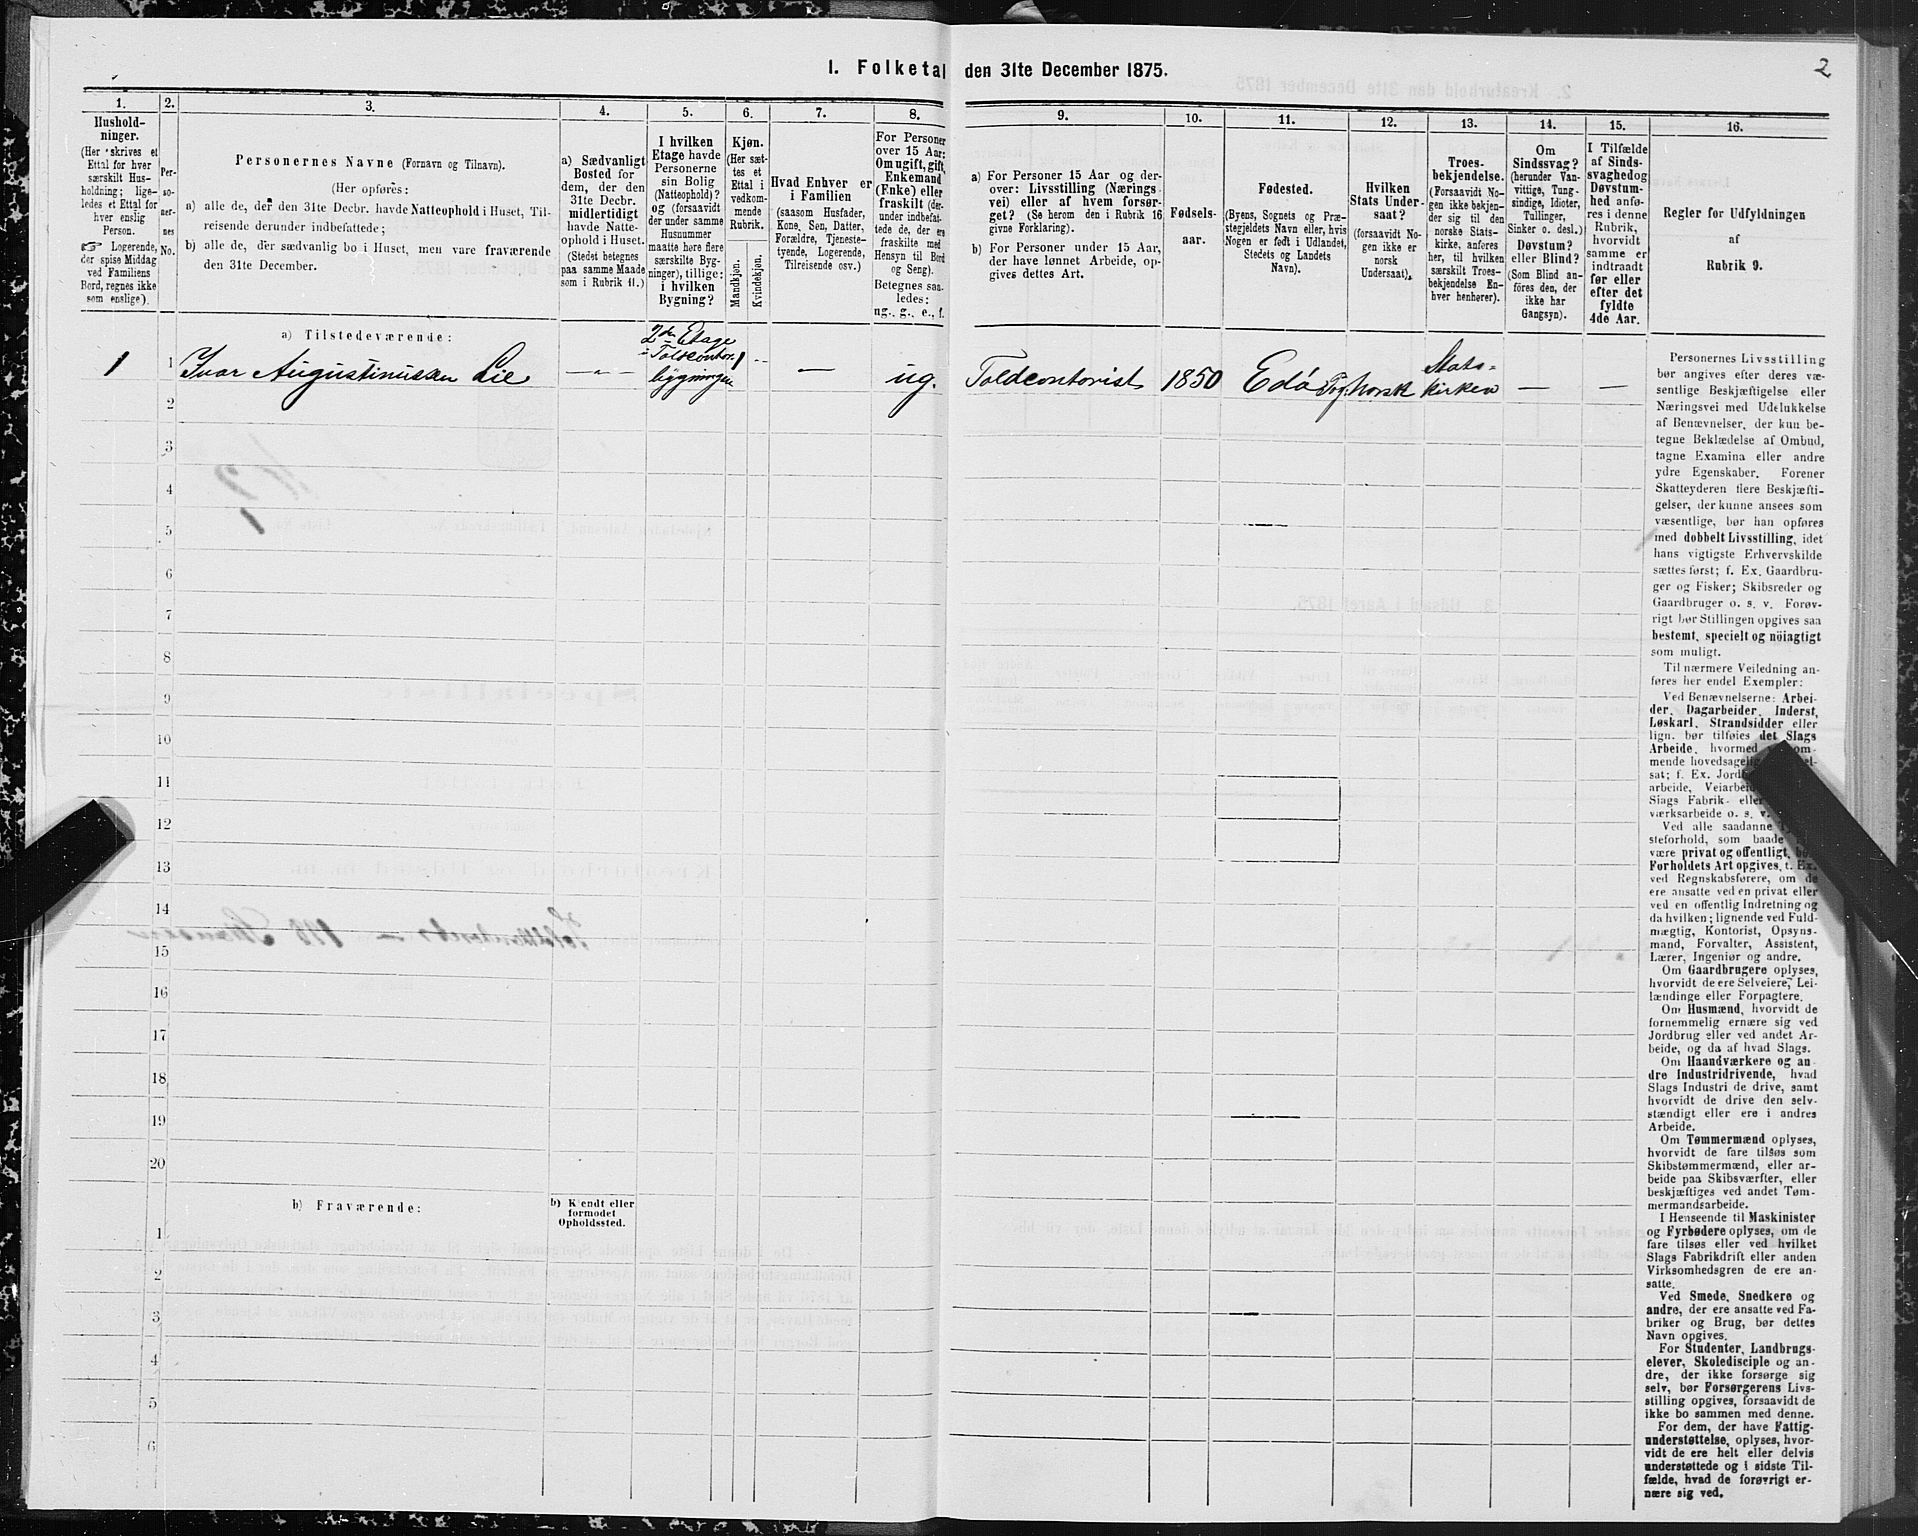 1. Folketal den 31te December 1875.
2
1.
Hushold-
ninger.
(Her skrives et
Ettal for hver
særskilt Hus-
holdning; lige-
ledes et Ettal for
hver enslig
Person.
☞ Logerende,
der spise Middag
ved Familiens
Bord, regnes ikke
som enslige).
2.
Per-
so-
ner-
nes
No.
3.
Personernes Navne (Fornavn og Tilnavn).
(Her opføres:
a) alle de, der den 31te Decbr. havde Natteophold i Huset, Til-
reisende derunder indbefattede;
b) alle de, der sædvanlig bo i Huset, men vare fraværende
den 31te December.
4.
a) Sædvanligt
Bosted for
dem, der den
31te Decbr.
midlertidigt
havde Natte-
ophold i Huset.
(Stedet betegnes
paa samme Maade
som i Rubrik 11.)
5.
I hvilken
Etage havde
Personerne
sin Bolig
(Natteophold)?
og (forsaavidt
der under samme
Husnummer
maatte høre flere
særskilte Byg-
ninger), tillige:
i hvilken
Bygning?
6.
Kjøn.
(Her sæt-
tes et
Ettal i
vedkom-
mende
Rubrik.
Mandkjøn.
Kvindekjøn.
7.
Hvad Enhver er
i Familien
(saasom Husfader,
Kone, Søn, Datter,
Forældre, Tjeneste-
tyende, Logerende,
Tilreisende osv.)
8.
For Personer
over 15 Aar:
Om ugift, gift,
Enkemand
(Enke) eller
fraskilt (der-
under indbefat-
tede de, der ere
fraskilte med
Hensyn til Bord
og Seng).
Betegnes saa-
ledes:
ug., g., e., f.
9.
a) For Personer 15 Aar og der-
over: Livsstilling (Nærings
vei) eller af hvem forsør-
get? (Se herom den i Rubrik 16
givne Forklaring).
b) For Personer under 15 Aar,
der have lønnet Arbeide, op-
gives dettes Art.
10.
Fødsels-
aar.
11.
Fødested.
(Byens, Sognets og Præ-
stegjeldets Navn eller, hvis
Nogen er født i Udlandet,
Stedets og Landets
Navn).
12.
Hvilken
Stats Under-
saat?
(forsaavidt No-
gen ikke er
norsk
Undersaat).
13.
Troes-
bekjendelse.
(Forsaavidt No-
gen ikke bekjen-
der sig til den
norske Stats-
kirke, anføres
her, til hvilken
særskilt Troes-
bekjendelse En-
hver henhører).
14.
Om
Sindssvag?
(herunder Van-
vittige, Tung-
sindige, Idioter,
Tullinger,
Sinker o. desl.)
Døvstum?
eller Blind?
(Som Blind an-
føres den, der
ikke har
Gangsyn).
15.
I Tilfælde
af Sinds-
svaghed og
Døvstum-
hed anfø-
res i denne
Rubrik,
hvorvidt
samme er
indtraadt
før eller
efter det
fyldte
4de Aar.
16.
Regler for Udfyldningen
af
Rubrik 9.
a) Tilstedeværende:
1 1 Ivar Augustinussen Lie — „ — 2den Etage
i Toldcontor-
bygningen 1 — ug. Toldcontorist 1850 Edö norsk Stats-
kirken — —
2
3
4
5
6
7
8
9
10
11
12
13
14
15
16
17
18
19
20
b) Fraværende:
b) Kjendt eller
formodet
Opholdssted.
1
2
3
4
5
6
Personernes Livsstilling
bør angives efter deres væ-
sentlige Beskjæftigelse eller
Næringsvei med Udelukkelse
af Benævnelser, der kun be-
tegne Beklædelse af Ombud,
tagne Examina eller andre
ydre Egenskaber. Forener
Skatteyderen flere Beskjæfti-
gelser, der kunne ansees som
væsentlige, bør han opføres
med dobbelt Livsstilling, idet
hans vigtigste Erhvervskilde
sættes først; f. Ex. Gaardbru-
ger og Fisker; Skibsreder og
Gaardbruger o. s. v. Forøv-
rigt bør Stillingen opgives saa
bestemt, specielt og nöiagtigt
som muligt.
Til nærmere Veiledning an-
føres her endel Exempler:
Ved Benævnelserne: Arbei-
der, Dagarbeider, Inderst,
Løskarl, Strandsidder eller
lign. bør tilføies det Slags
Arbeide, hvormed
mende hovedsagelig
sat; f. Ex.
arbeide,
Slags Fabrik- eller
værksarbeide o. s. v.
Ved alle saadanne
steforhold, som baade
være privat og offentligt, bør
Forholdets Art opgives, t. Ex.
ved Regnskabsførere, om de
ere ansatte ved en privat eller
ved en offentlig Indretning og
da hvilken; lignende ved Fuld-
mægtig, Kontorist, Opsyns-
mand, Forvalter, Assistent,
Lærer, Ingeniør og andre.
Om Gaardbrugere oplyses,
hvorvidt de ere Selveiere, Lei-
lændinge eller Forpagtere.
Om Husmænd, hvorvidt de
fornemmelig ernære sig ved
Jordbrug eller ved andet Ar-
beide, og da af hvad Slags.
Om Haandværkere og an-
dre Industridrivende, hvad
Slags Industri de drive, samt
hvorvidt de drive den selv-
stændigt eller ere i andres
Arbeide.
Om Tømmermænd oplyses,
hvorvidt de fare tilsøs som
Skibstømmermænd, eller ar-
beide paa Skibsværfter, eller
beskjæftiges ved andet Tøm-
mermandsarbeide.
I Henseende til Maskinister
og Fyrbødere oplyses, om de
fare tilsøs eller ved hvilket
Slags Fabrikdrift eller anden
Virksomhedsgren de ere an-
satte.
Ved Smede, Snedkere og
andre, der ere ansatte ved Fa-
briker og Brug, bør dettes
Navn opgives.
For Studenter, Landbrugs-
elever, Skoledisciple og an-
dre, der ikke forsørge sig
selv, bør Forsørgerens Livs-
stilling opgives, forsaavidt de
ikke bo sammen med denne.
For dem, der have Fattig-
understøttelse, oplyses, hvor-
vidt de ere helt eller delvis
understøttede og i sidste Til-
fælde, hvad de forøvrigt er-
nære sig ved.